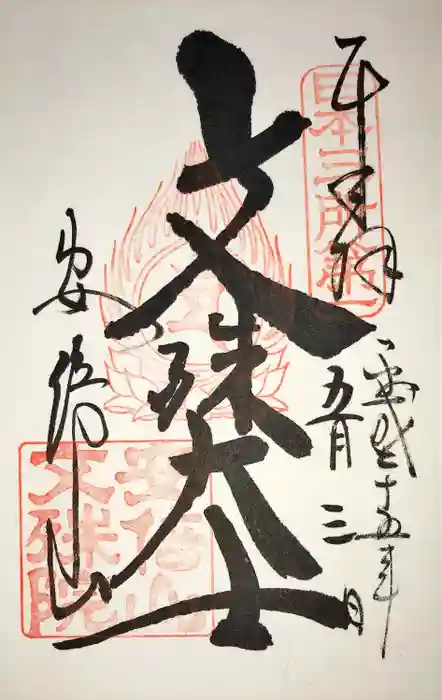 奉拝
日本三所第一
平成十五年
五月三日
文殊大士
安倍山
安倍山
文殊院